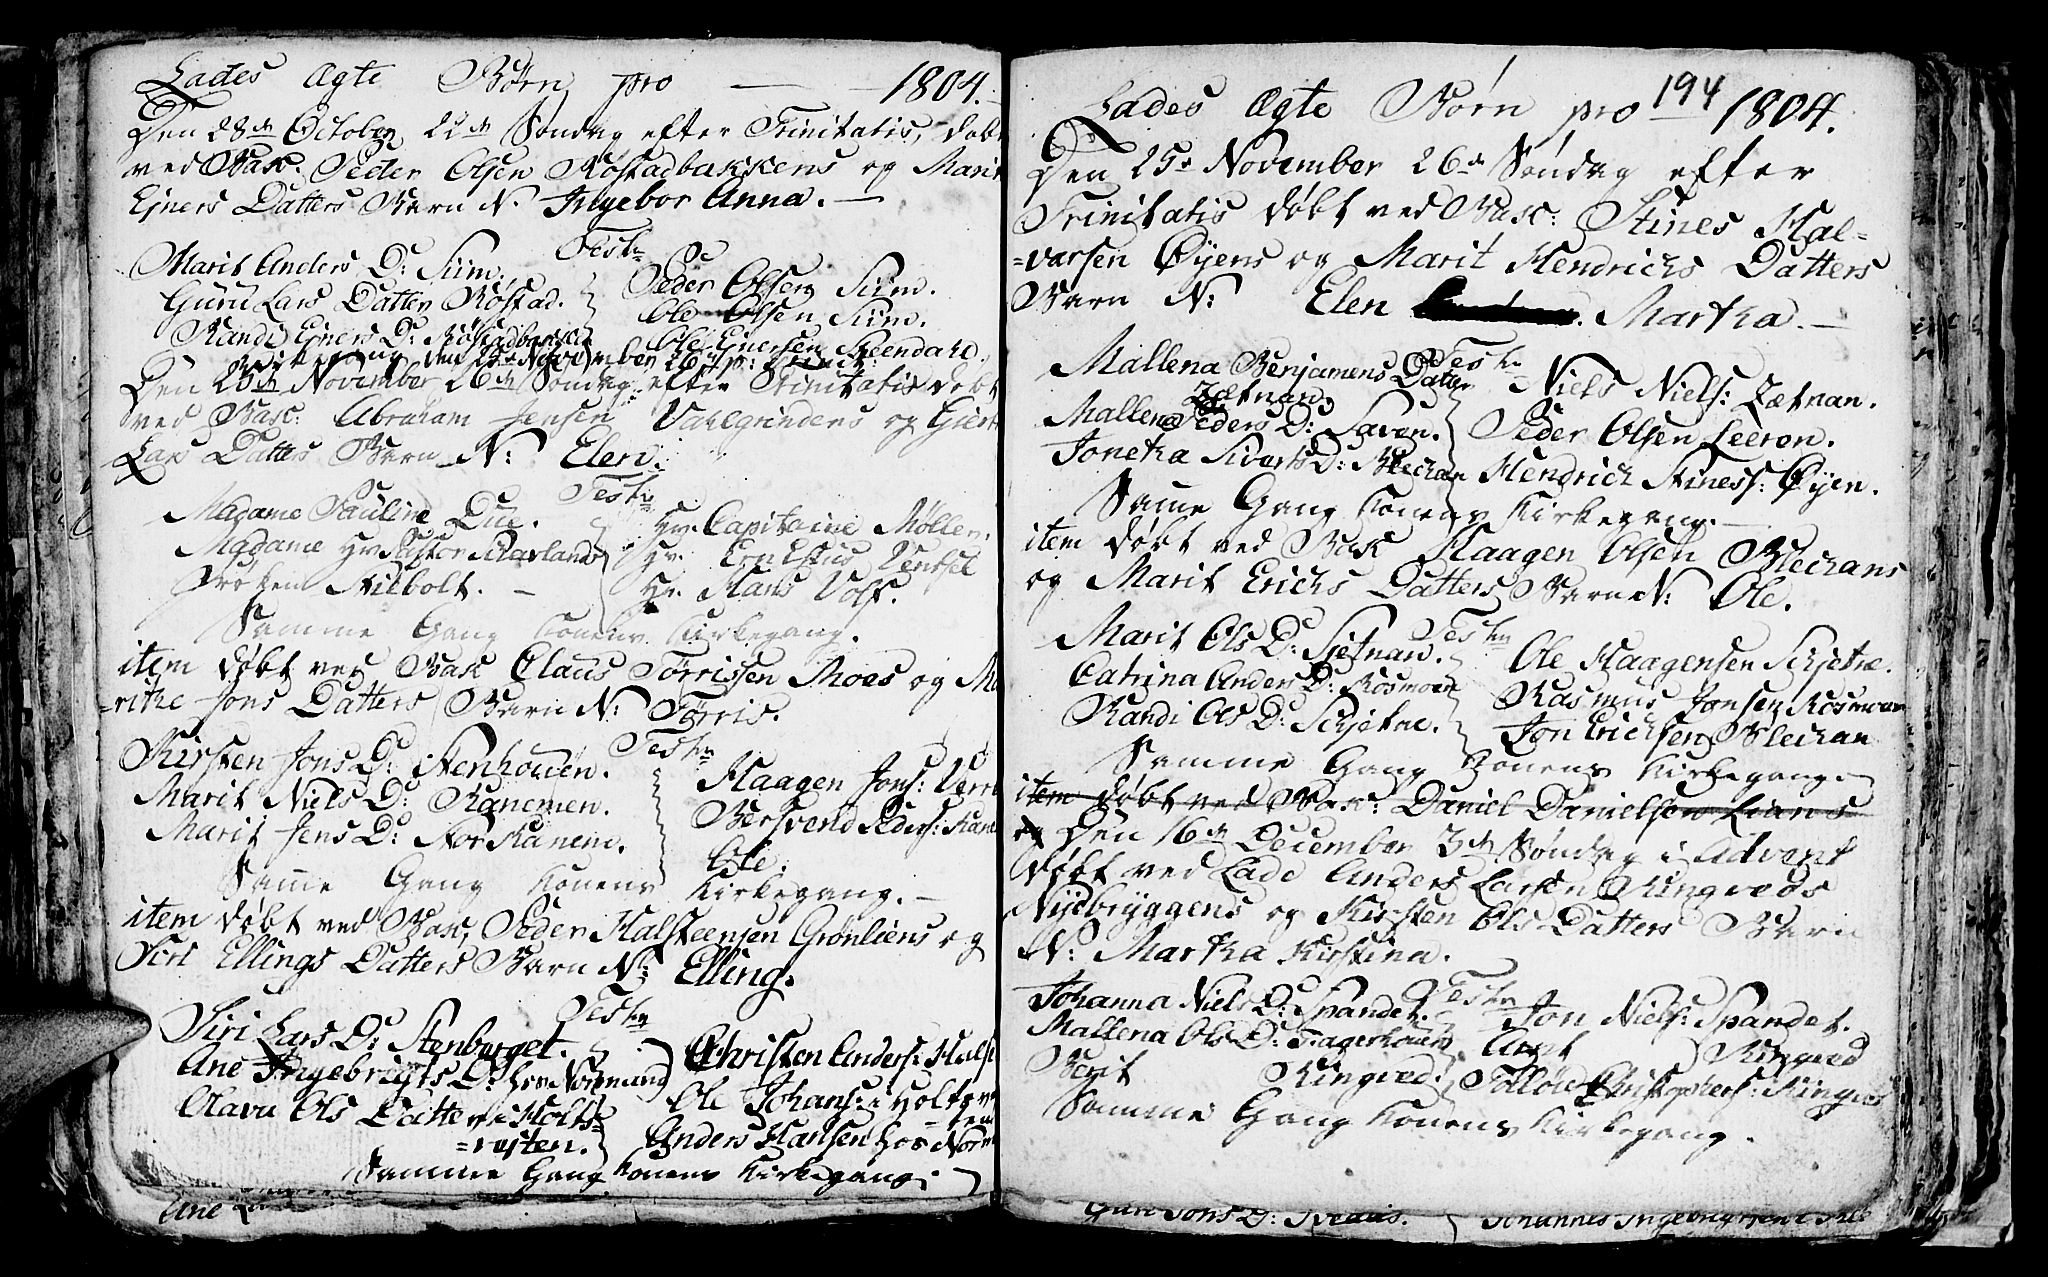 Lades Ægte Børn pro — 1804.
Den 28de October 22de Søndag efter Trinitatis, døbt
ved Bak: Peder Olsen Røstadbakkens og Marit
Ejners Datters Barn N. Ingebor Anna. —
Testes
Marit Anders D: Siim.
Guru Lars Datter Røstad.
Randi Ejners D: Røstadbakken
Peder Olsen Siim.
Ole Olsen Siim.
Ole Ejnersen Steendahl.
Kirkegang den 25de November 26 p: Trinit:
Den 25de November 26de Søndag efter Trinitatis døbt
ved Bak: Abraham Jensen Vahlgrindens og Giert
Lars Datters Barn N: Elen.
Testes
Madame Pauline Due.
Madame Hr Pastor Scharland
Frøken Nilbolt. —
Hr. Capitaine Møller.
Hr. Ernestus Ventsel
Hr. Hans Volf.
Samme Gang Konens Kirkegang.
item døbt ved Bak Claus Tørrissen Moes og Ma
=ritte Jons Datters Barn N: Tørris.
Testes
Kirsten Jons D: Stenhouen.
Marit Niels D: Ranemen.
Marit Jens D: Nor Ranem.
Haagen Jons: Verre
Bersvend Peders: Rane
Ole.
Samme Gang Konens Kirkegang. —
item døbt ved Bak, Peder Halsteensen Grønliens og
Siri Ellings Datters Barn N: Elling.
Testes
Siri Lars D: Stenberget.
Ane Ingebrigts D: hos Normand
Olava Ols Datter i Holt=
=vasten.
Christen Anders: Halse
Ole Johans: i Holtev
Anders Hansen hos Norm
Samme Gang Konens Kirkegang.
Ane
194
Lades Ægte Børn pro — 1804.
Den 25de November 26de Søndag efter
Trinitatis døbt ved Bak: Stines Hal=
=varsen Øyens og Marit Hendrichs Datters
Barn N: Elen Martha. —
Testes
Mallena Benjamens Datter
Zætnan.
Mallena Peders D: Saven.
Jonetha Sivarts D: Blechan
Niels Niels: Zætnan.
Peder Olsen Leeron.
Hendrich Stiness: Øyen.
Samme Gang Konens Kirkegang. —
item døbt ved Bak Haagen Olsen Blechans
og Marit Erichs Datters Barn N: Ole.
Testes
Marit Ols D: Sjetnan.
Catrina Anders D: Rosmoen
Randi Ols D: Schjetne.
Ole Haagensen Schjetne.
Rasmus Jonsen Rosmoen
Jon Erichsen Blechan
Samme Gang Konens Kirkegang.
item døbt ved Bak: Daniel Danielsen Lians
og Den 16de December 3de Søndag i Advent
døbt ved Lade Anders Larsen Ringveds
Nydbryggens og Kirsten Ols Datters Barn
N: Martha Kirstina.
Testes
Johanna Niels D: Spandet.
Mallena Ols D: Fagerhouen
Berit Ringved.
Jon Niels: Spandet.
Arnt Ringved
Tolløv Christophers: Ringved
Samme Gang Konens Kirkegang.
Guri Jons D:
Johannes Ingebrigtsen